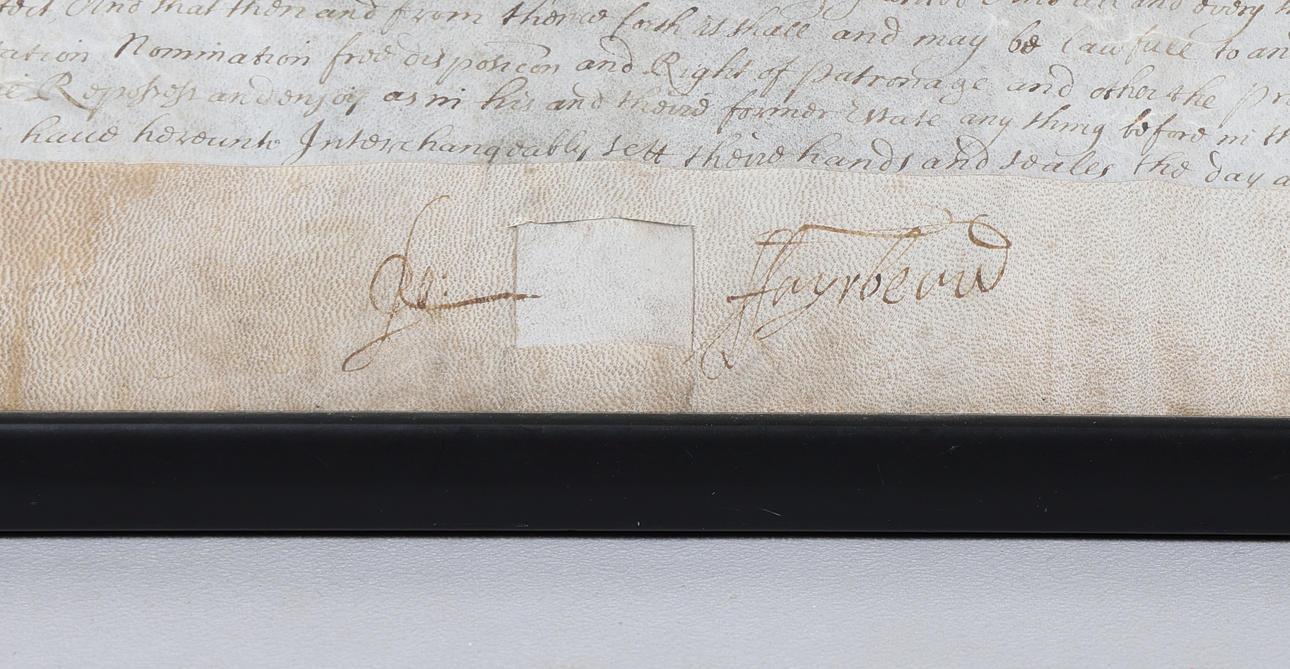 And that then and from thence forth it shall and may be lawfull to
Nomination free disposicon and Right of Patronage and other the
Repossess and enjoy as in his and theire former Estate any thing before in
have hereunto Interchangeably sett theire hands and seales the day
Ri: Fayrbeard